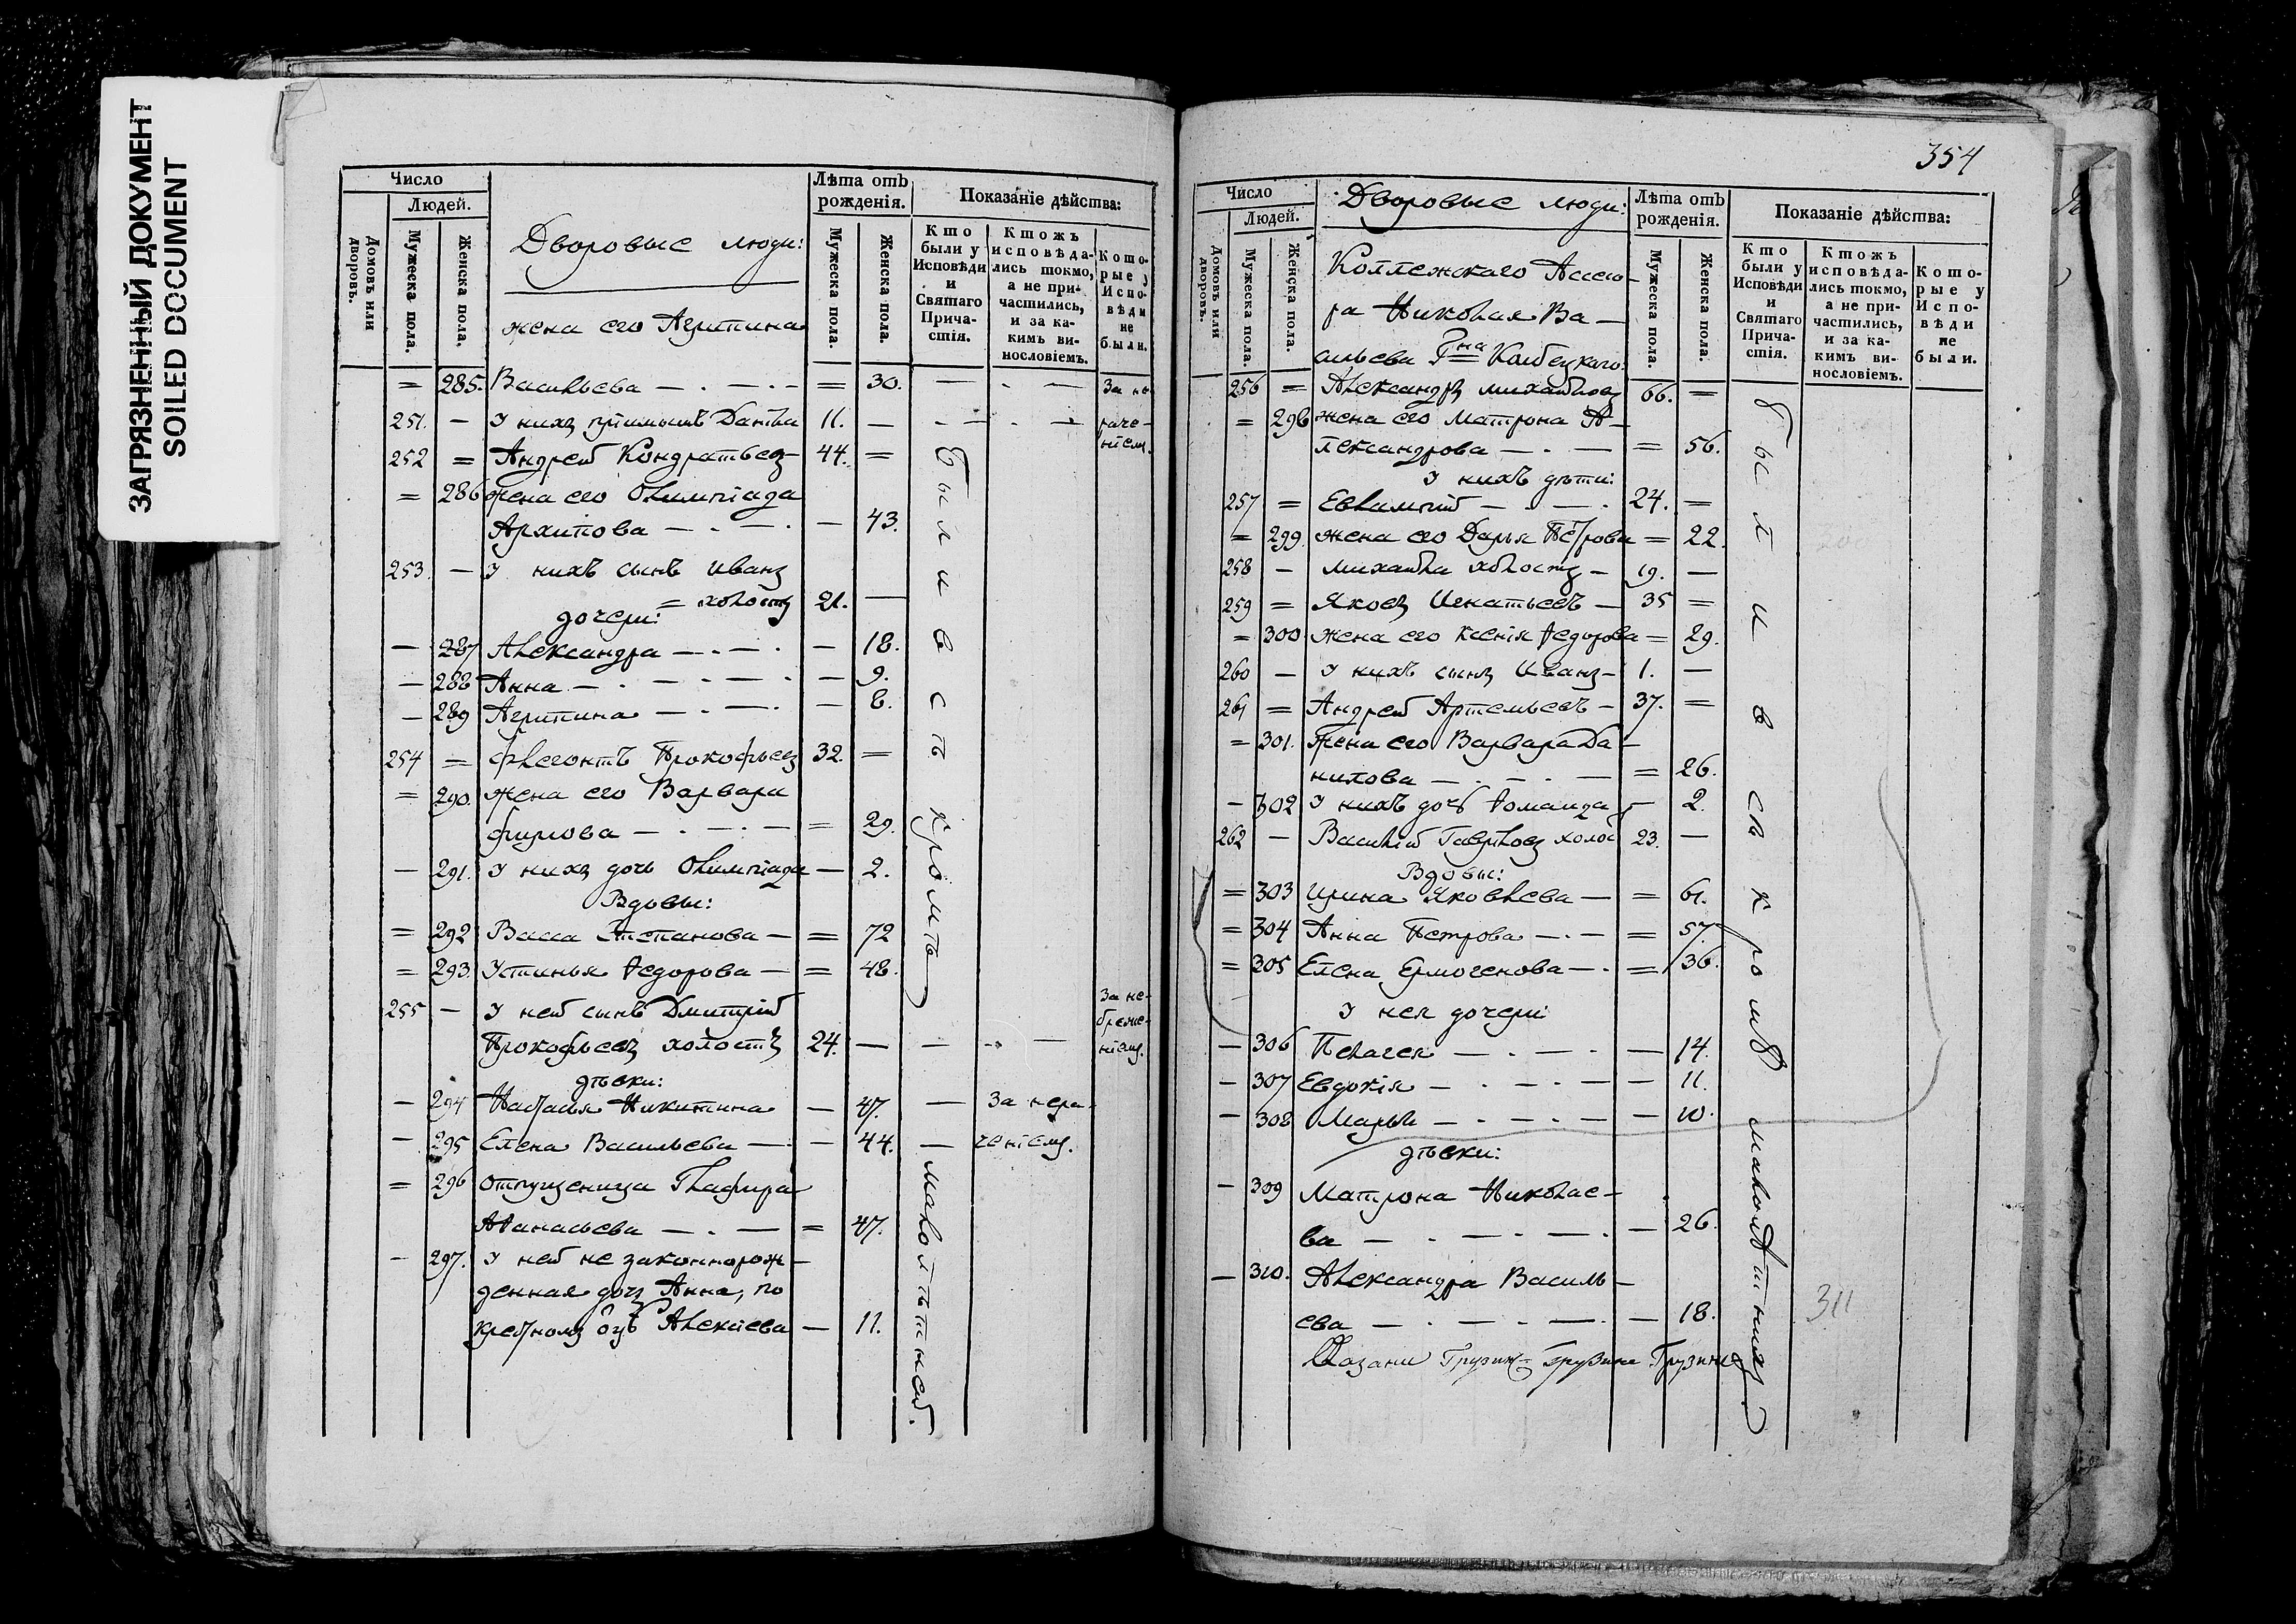 ЗАГРЯЗНЕННЫЙ ДОКУМЕНТ
SOILED DOCUMENT
Число
Людей.
Домовъ или дворовъ.
Мужеска пола.
Женска пола.
Дворовые люди:
жена его Агрипина
Лѣта отъ рожденія.
Мужеска пола.
Женска пола.
Показаніе дѣйства:
Кто были у Исповѣди и Святаго Причастія.
Ктожъ исповѣдались токмо, а не причастились, и за какимъ винословіемъ.
Которые у Исповѣди не были.
= 285. Васильева — . — . — = 30. — . — За не
251. — У нихъ приимышъ Данила 11. — . — . — раче-
ніем.
252 = Андрей Кондратьевъ 44. =
= 286 жена его Олимпіада
Архипова — . — . — 43.
253. — У нихъ сынъ Иванъ
= холостъ 21. —
дочери:
— 287 Александра — . — . — 18.
— 288 Анна — . — . — . — 9.
— 289 Агрипина — . — . — 8.
254 = Флегонтъ Прокофьевъ 32. =
= 290. жена его Варвара
Фирсова — . — . — = 29.
— 291. У нихъ дочь Олимпіада — 2.
Вдовы:
= 292 Васса Степанова — = 72
= 293. Устинья Ѳедорова — = 48.
255 — У ней сынъ Дмитрій За не-
бреже-
Прокофьевъ холостъ 24. — — . — ніем.
дѣвки:
— 294 Настасья Никитина — 47. — За нера-
— 295 Елена Васильева — . — 44. — ченіем.
= 296 отпущеница Глафира
Аѳанасьева — . — = 47.
— 297. У ней не законнорож-
денная дочь Анна, по
крестному отцѣ Алексѣева — 11.
были в съ кромѣ малолѣтней.
354
Число
Людей.
Домовъ или дворовъ.
Мужеска пола.
Женска пола.
Дворовые люди:
Коллежскаго Ассесо-
ра Николая Ва-
сильева Гна
Лѣта отъ рожденія.
Мужеска пола.
Женска пола.
Показаніе дѣйства:
Кто были у Исповѣди и Святаго Причастія.
Ктожъ исповѣдались токмо, а не причастились, и за какимъ винословіемъ.
Которые у Исповѣди не были.
256 = Александръ Михайловъ 66. =
= 298 жена его Матрона А-
лександрова — . — = 56.
У нихъ дѣти:
257 = Евлампій — . — . 24. =
= 299. жена его Дарья Петрова = 22.
258 — Михайла холостъ — 19. —
259 = Яковъ Игнатьевъ — 35 =
= 300 жена его Ксенія Ѳедорова = 29.
260 — У нихъ сынъ Иванъ — 1. —
261 = Андрей Артемьевъ — 37. =
= 301. жена его Варвара Да-
нилова — . — . — = 26.
— 302 У нихъ дочь Ѳомаида — 2.
262 — Василій Гавриловъ холос 23. —
Вдовы:
= 303 Ирина Яковлева — = 61.
= 304 Анна Петрова — . — = 57.
= 305 Елена Ермогенова — . = 36.
У нея дочери:
— 306 Пелагея — . — . — 14.
— 307 Евдокія — . — . — — 11.
— 308 Марья — . — . — — 10.
дѣвки:
— 309 Матрона Николае-
ва — . — . — . — 26.
— 310. Александра Василь-
ева — . — . — . — 18.
были в съ кромѣ малолѣтнихъ.
311